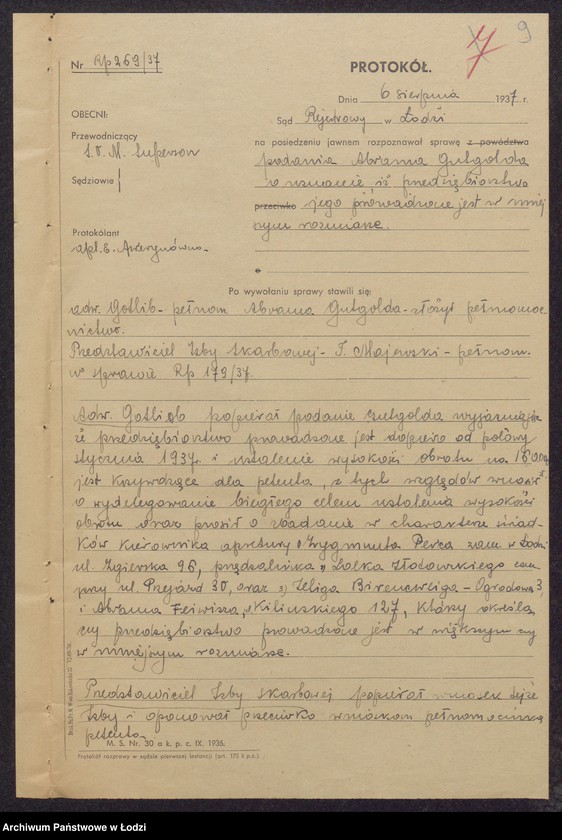 9
7
Nr Rp 269/37
PROTOKÓŁ.
Dnia 6 sierpnia 1937 r.
OBECNI:
Sąd Rejestrowy w Łodzi
Przewodniczący
na posiedzeniu jawnem rozpoznawał sprawę z powództwa
S.O. M.
podania Abrama Gutgolda
Sędziowie
o uznanie iż przedsiębiorstwo
przeciwko jego prowadzone jest w mniej
szym rozmiarze.
Protokólant
apl. E.
o
Po wywołaniu sprawy stawili się:
adw. Gotlib - pełnom. Abrama Gutgolda - złożył pełnomoc
nictwo.
Przedstawiciel Izby Skarbowej - T. Majewski - pełnom.
w sprawie Rp 179/37.
Adw. Gotlib popierał podanie Gutgolda wyjaśniając
że przedsiębiorstwo prowadzone jest dopiero od połowy
stycznia 1937 r. i ustalenie wysokości obrotu na
jest krzywdzące dla petenta, z tych względów wnosił
o wydelegowanie biegłego celem ustalenia wysokości
obrotu oraz prosił o zbadanie w charakterze świad-
ków kierownika apretury Zygmunta Perca zam. w Łodzi
ul. Zgierska 96, przędzalnika Lolka Złotowskiego zam.
przy ul. Przejazd 30, oraz Zeliga - Ogrodowa 3,
i Abrama Feiwisza, Kilińskiego 127, którzy określą
czy przedsiębiorstwo prowadzone jest w większym czy
w mniejszym rozmiarze.
Przedstawiciel Izby Skarbowej popierał wniosek tejże
Izby i oponował przeciwko wnioskom pełnomocnika
petenta.
M. S. Nr. 30 a k. p. c. IX. 1936.
Protokół rozprawy w sądzie pierwszej instancji (art. 175 k.p.c.)
Archiwum Państwowe w Łodzi